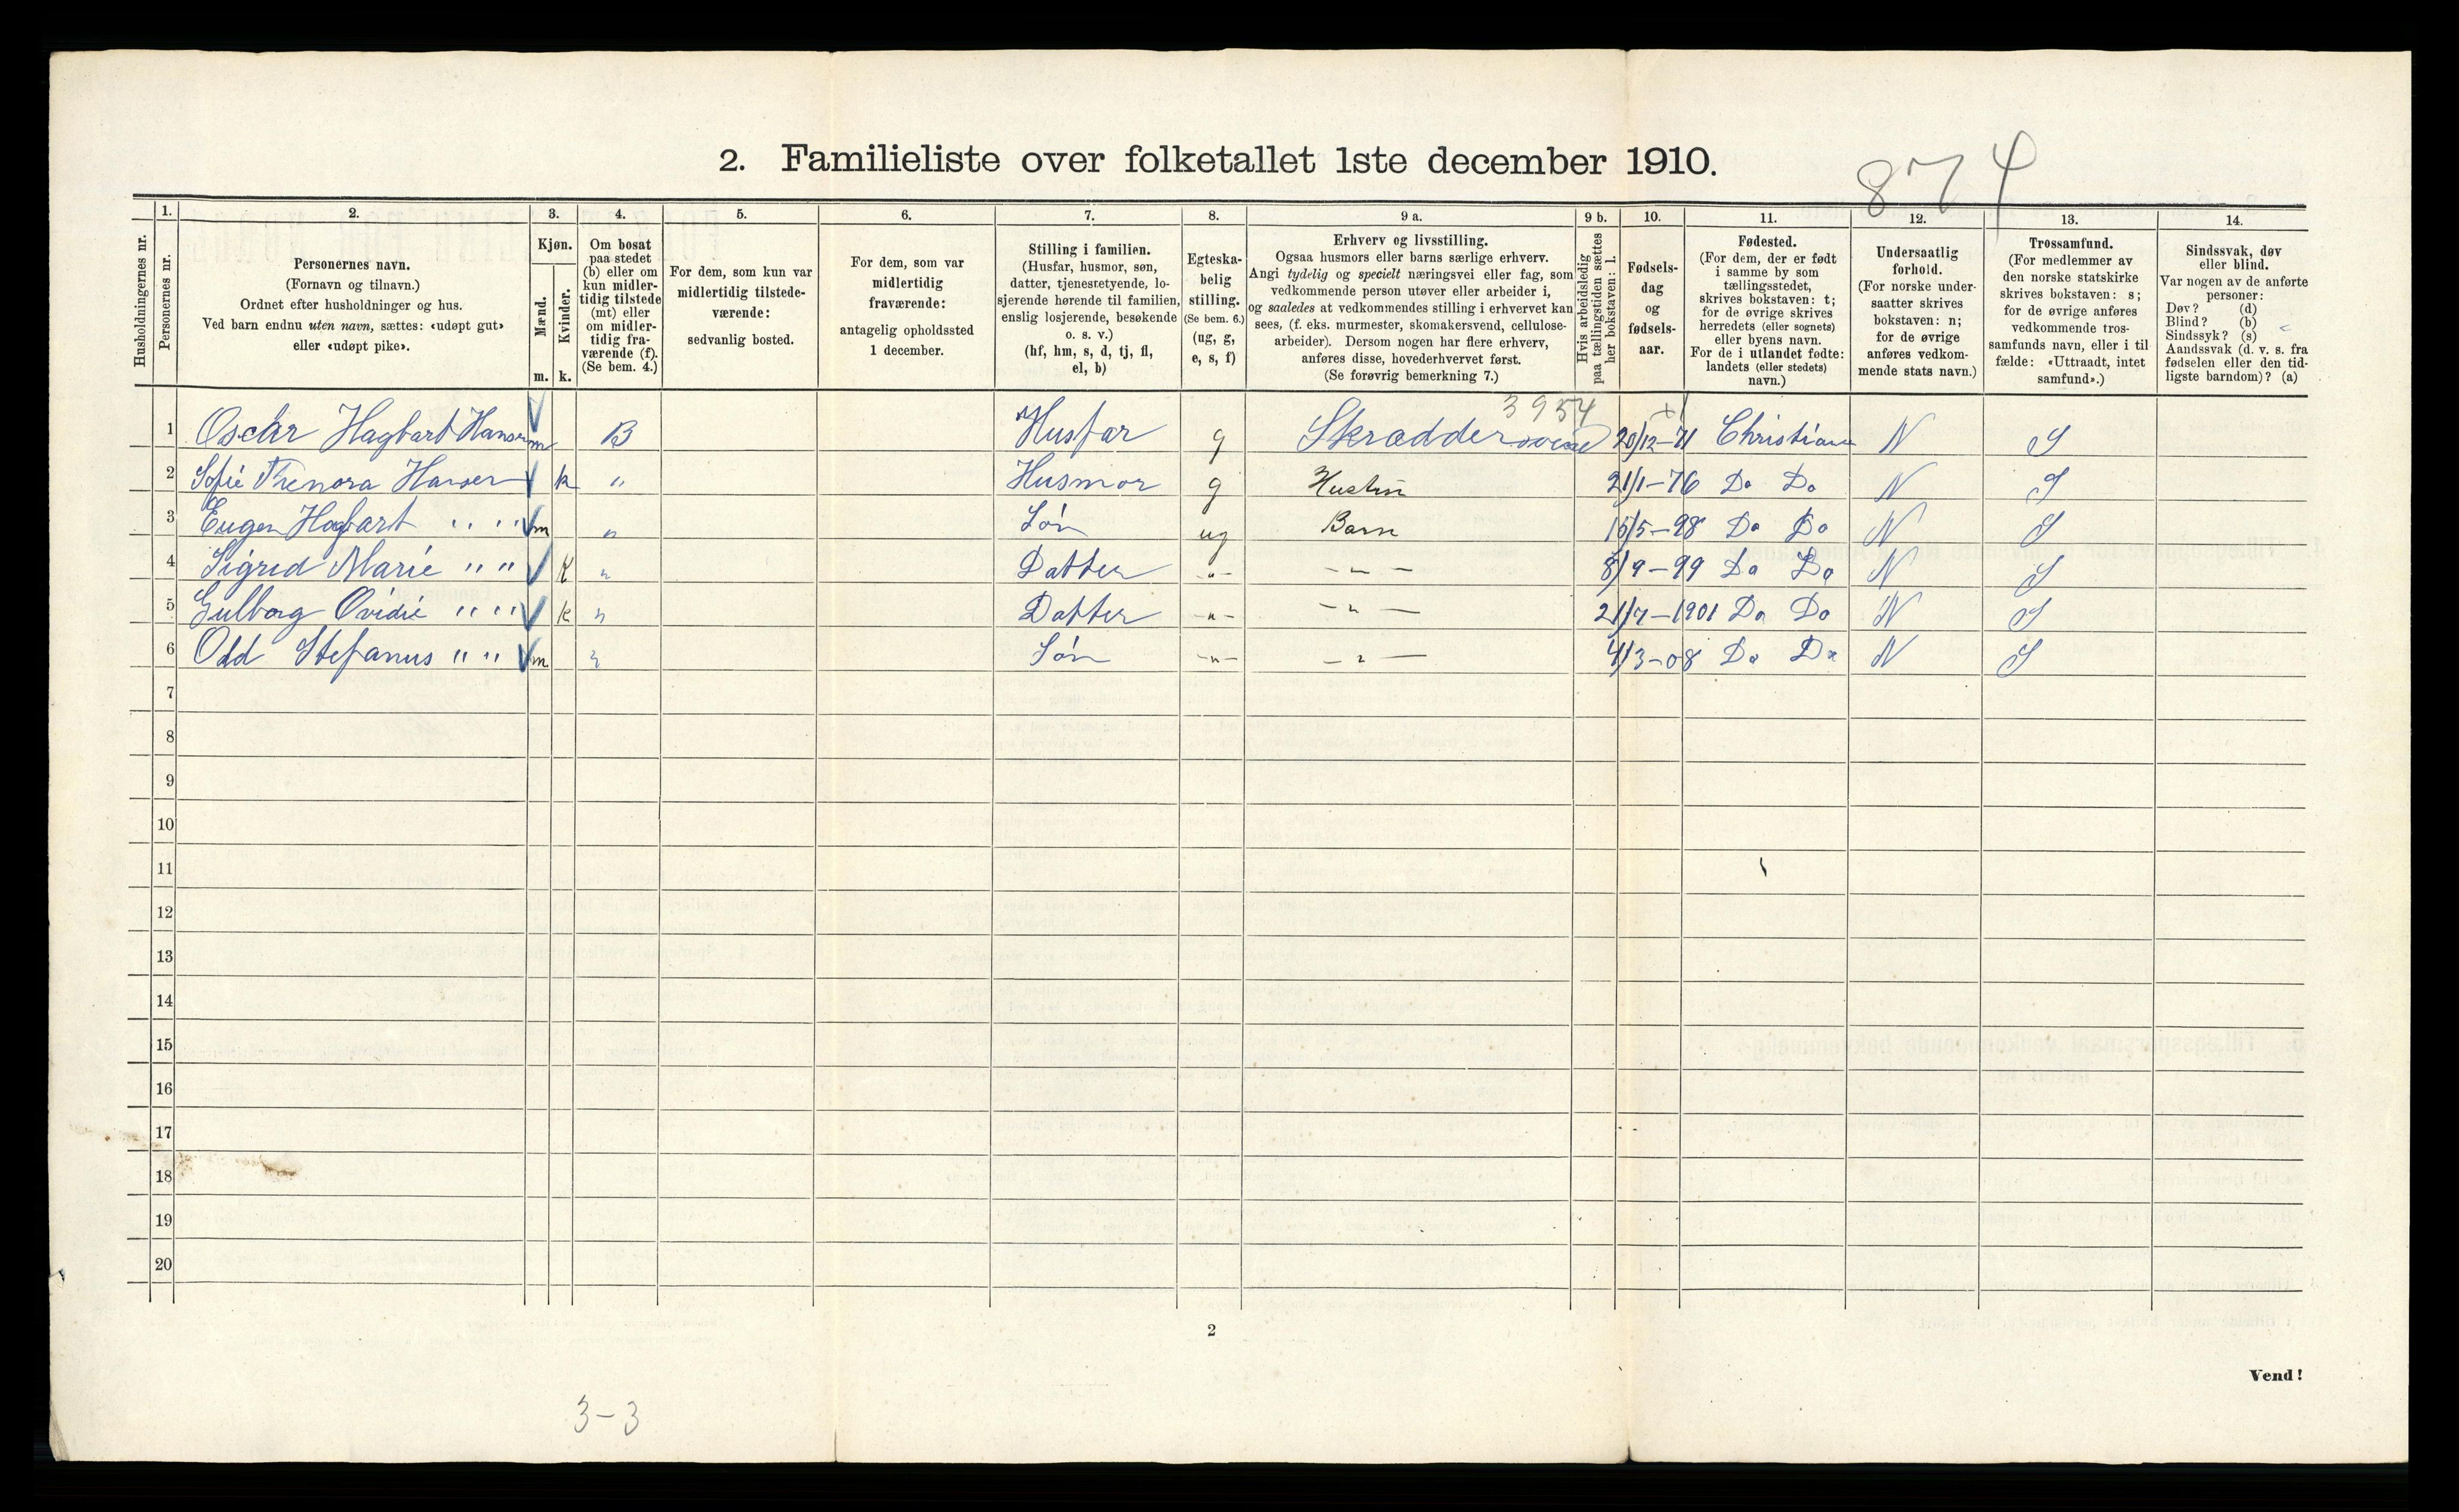 2. Familieliste over folketallet 1ste december 1910.
874
1. 2. 3. 4. 5. 6. 7. 8. 9 a. 9 b. 10. 11. 12. 13. 14.
Husholdningernes nr.
Personernes nr.
Personernes navn.
(Fornavn og tilnavn.)
Ordnet efter husholdninger og hus.
Ved barn endnu uten navn, sættes: «udøpt gut»
eller «udøpt pike».
Kjøn.
Mænd.
Kvinder.
m. k.
Om bosat
paa stedet
(b) eller om
kun midler-
tidig tilstede
(mt) eller
om midler-
tidig fra-
værende (f).
(Se bem. 4.)
For dem, som kun var
midlertidig tilstede-
værende:
sedvanlig bosted.
For dem, som var
midlertidig
fraværende:
antagelig opholdssted
1 december.
Stilling i familien.
(Husfar, husmor, søn,
datter, tjenestetyende, lo-
sjerende hørende til familien,
enslig losjerende, besøkende
o. s. v.)
(hf, hm, s, d, tj, fl,
el, b)
Egteska-
belig
stilling.
(Se bem. 6.)
(ug, g,
e, s, f)
Erhverv og livsstilling.
Ogsaa husmors eller barns særlige erhverv.
Angi tydelig og specielt næringsvei eller fag, som
vedkommende person utøver eller arbeider i,
og saaledes at vedkommendes stilling i erhvervet kan
sees, (f. eks. murmester, skomakersvend, cellulose-
arbeider). Dersom nogen har flere erhverv,
anføres disse, hovederhvervet først.
(Se forøvrig bemerkning 7.)
Hvis arbeidsledig
paa tællingstiden sættes
her bokstaven: l.
Fødsels-
dag
og
fødsels-
aar.
Fødested.
(For dem, der er født
i samme by som
tællingsstedet,
skrives bokstaven: t;
for de øvrige skrives
herredets (eller sognets)
eller byens navn.
For de i utlandet fødte:
landets (eller stedets)
navn.)
Undersaatlig
forhold.
(For norske under-
saatter skrives
bokstaven: n;
for de øvrige
anføres vedkom-
mende stats navn.)
Trossamfund.
(For medlemmer av
den norske statskirke
skrives bokstaven: s;
for de øvrige anføres
vedkommende tros-
samfunds navn, eller i til-
fælde: «Uttraadt, intet
samfund».)
Sindssvak, døv
eller blind.
Var nogen av de anførte
personer:
Døv? (d)
Blind? (b)
Sindssyk? (s)
Aandssvak (d. v. s. fra
fødselen eller den tid-
ligste barndom)? (a)
3954
1 Oscar Hagbart Hansen m B Husfar g Skræddersvend 20/12-71 Christiania N S
2 Sofie Hansen k " Husmor g Hustru 21/1-76 Do Do N S
3 Eugen Hagbart " " m " Søn ug Barn 15/5-98 Do Do N S
4 Sigrid Marie " " K " Datter -"- -"- 8/9-99 Do Do N S
5 Gulborg Ovidie " " k " Datter -"- -"- 21/7-1901 Do Do N S
6 Odd Stefanus " " m " Søn -"- -"- 4/3-08 Do Do N S
7
8
9
10
11
12
13
14
15
16
17
18
19
20
2
Vend!
3-3